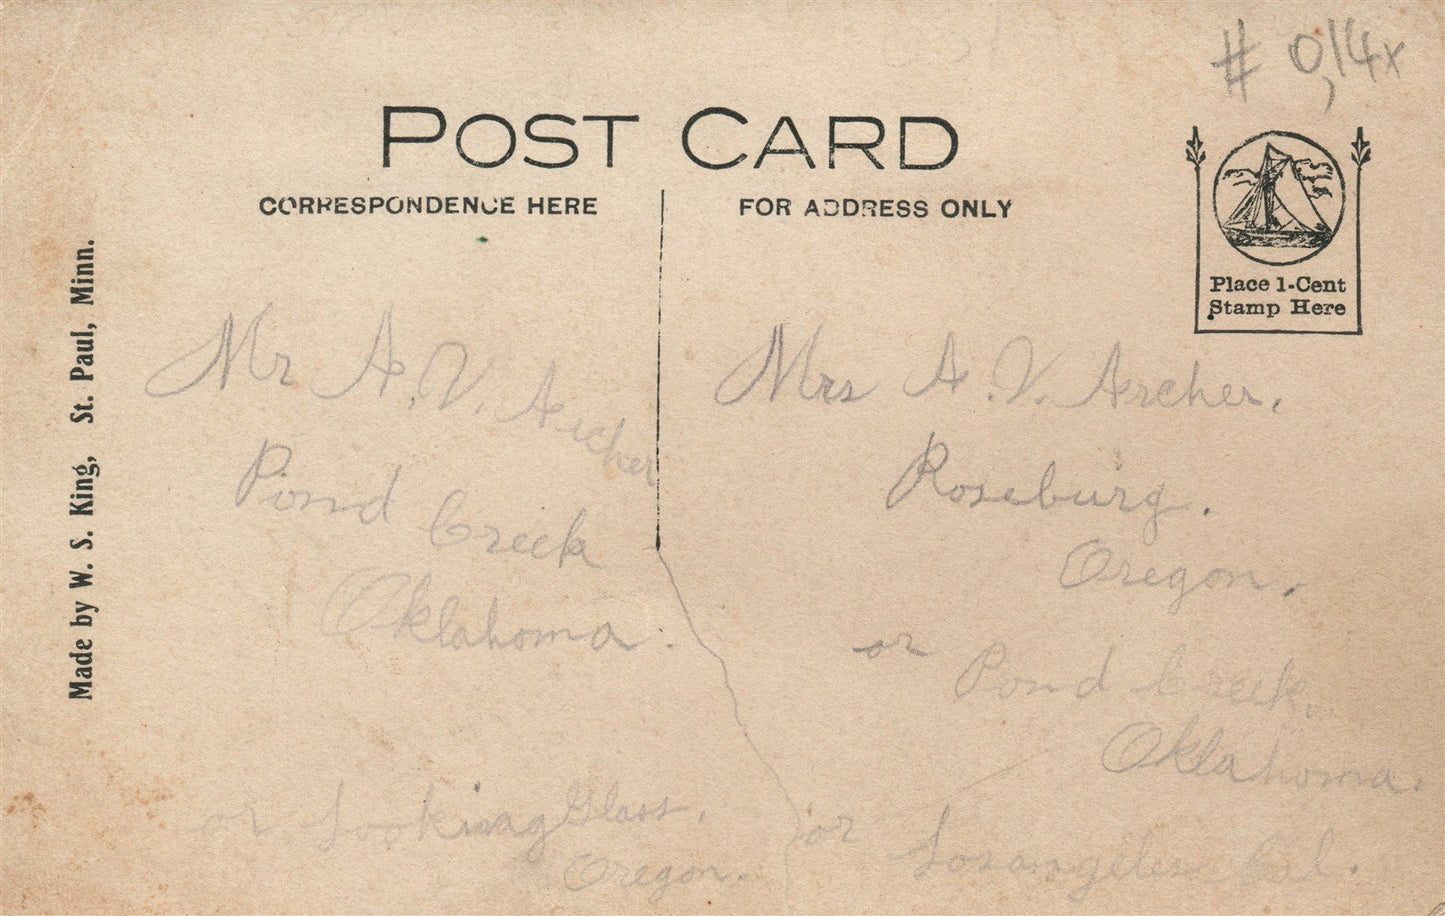 # 0,14x
POST CARD
CORRESPONDENCE HERE
FOR ADDRESS ONLY
Place 1-Cent
Stamp Here
Made by W. S. King, St. Paul, Minn.
Mr A. V. Archer
Pond Creek
Oklahoma.
or Looking Glass,
Oregon.
Mrs A. V. Archer.
Roseburg.
Oregon.
or Pond Creek,
Oklahoma.
or Losangeles Cal.